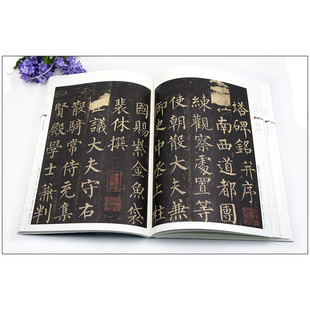 塔碑銘并序
江南西道都團
練觀察處置等
使朝散大夫兼
御史中丞上柱
國賜紫金魚袋
裴休撰
正議大夫守右
散騎常侍充集
賢殿學士兼判